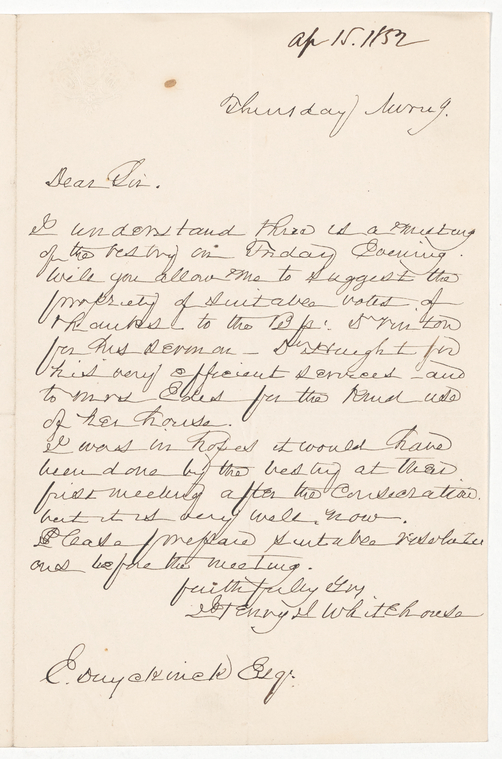 Ap 15. 1852
Thursday Morng.
Dear Sir.
I understand there is a meeting
of the vestry on Friday Evening.
will you allow me to suggest the
propriety of suitable votes of
thanks to the Bp: Dr Vinton
for his sermon – Dr Haight for
his very efficient services – and
to Mrs for the kind use
of her house.
I was in hopes it would have
been done by the vestry at their
first meeting after the Consecration.
but it is very well now.
Please prepare suitable resoluti
ons before the meeting.
faithfully Yrs
Henry Whitehouse
E. Duyckinck Esqr.